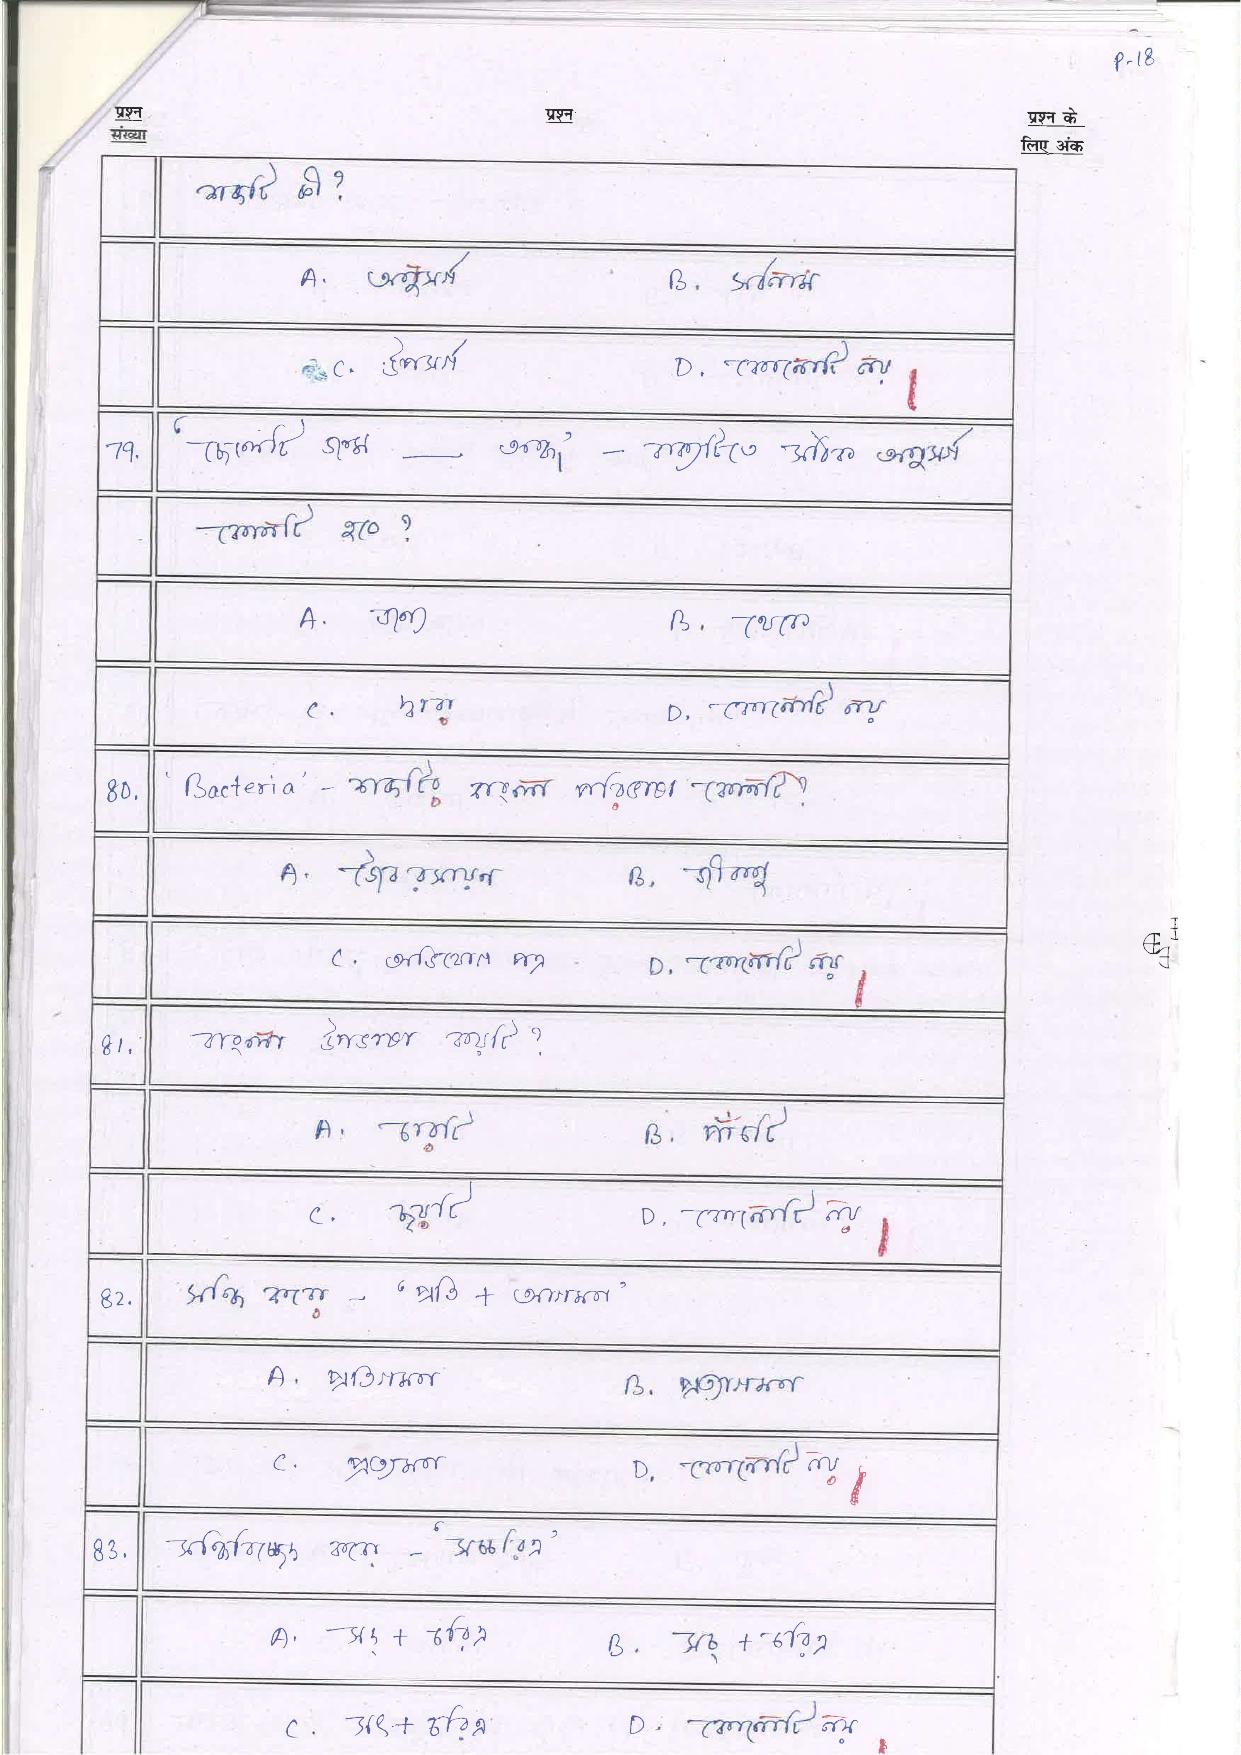 P-18
प्रश्न संख्या प्रश्न प्रश्न के लिए अंक
শব্দটি কী?
A. অনুসর্গ B. সর্বনাম
C. উপসর্গ D. কোনোটি নয়
79. 'ছেলেটি জন্ম ___ অন্ধ' - বাক্যটিতে সঠিক অনুসর্গ
কোনটি হবে?
A. জন্য B. থেকে
C. দ্বারা D. কোনোটি নয়
80. 'Bacteria' - শব্দটির বাংলা পরিভাষা কোনটি?
A. জৈব রসায়ন B. জীবাণু
C. অভিযোগ পত্র D. কোনোটি নয়
81. বাংলা উপভাষা কয়টি?
A. চারটি B. পাঁচটি
C. ছয়টি D. কোনোটি নয়
82. সন্ধি করো - 'প্রতি + আগমন'
A. প্রতিগমন B. প্রত্যাগমন
C. প্রত্যগমন D. কোনোটি নয়
83. সন্ধিবিচ্ছেদ করো - 'সচ্চরিত্র'
A. সচ্ + চরিত্র B. সদ্ + চরিত্র
C. সৎ + চরিত্র D. কোনোটি নয়